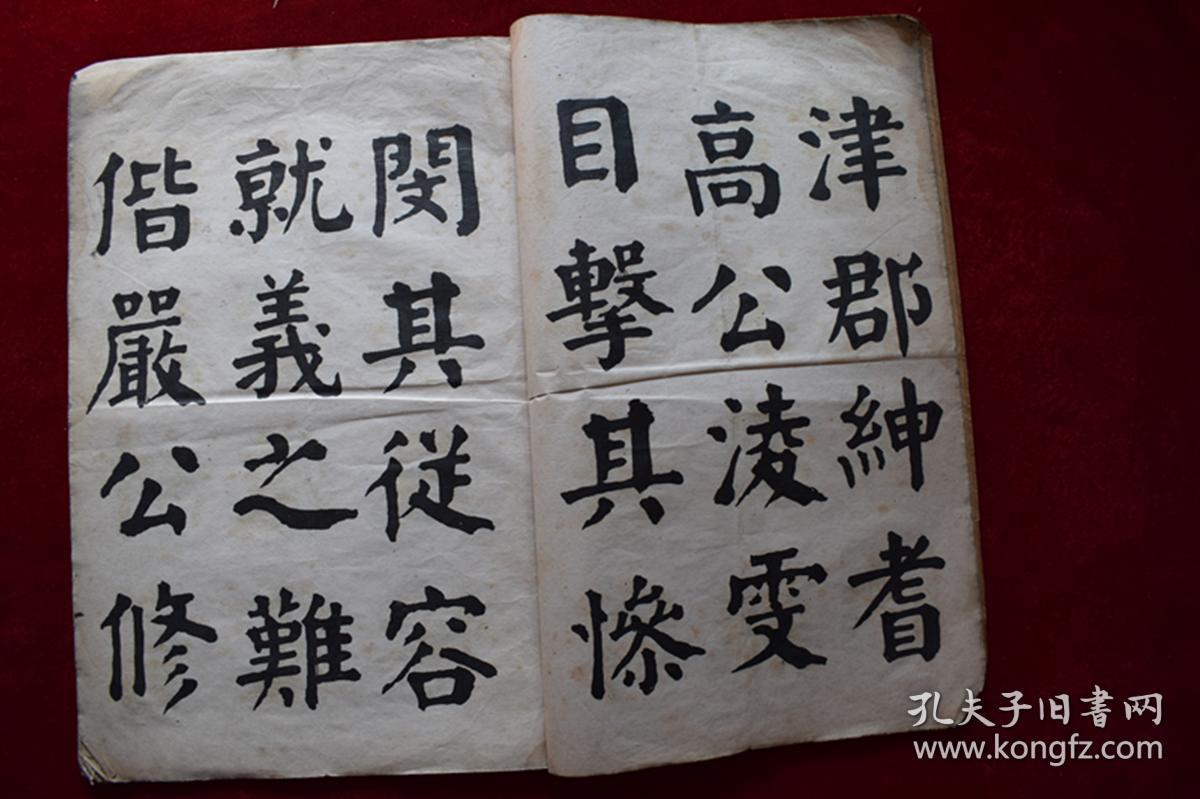 津郡紳耆
高公淩雯
目擊其慘
閔其從容
就義之難
偕嚴公修
孔夫子旧書网
www.kongfz.com